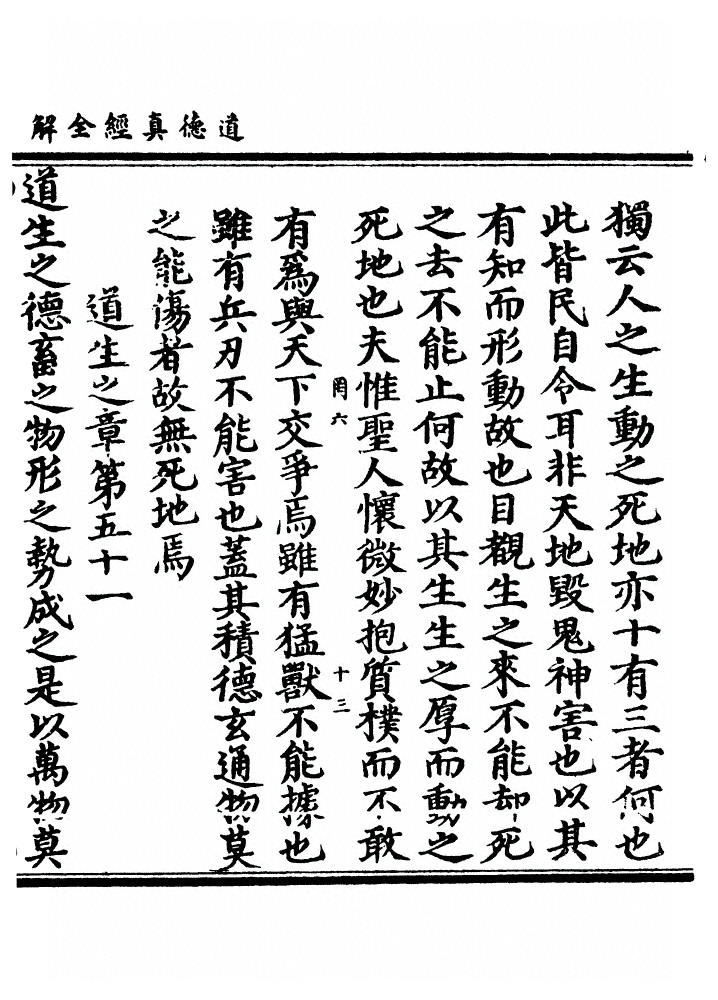 道德真經全解
獨云人之生動之死地亦十有三者何也
此皆民自令耳非天地毀鬼神害也以其
有知而形動故也目觀生之來不能却死
之去不能止何故以其生生之厚而動之
死地也夫惟聖人懷微妙抱質樸而不敢
罔六
十三
有爲與天下交爭焉雖有猛獸不能據也
雖有兵刃不能害也蓋其積德玄通物莫
之能傷者故無死地焉
道生之章第五十一
道生之德畜之物形之勢成之是以萬物莫